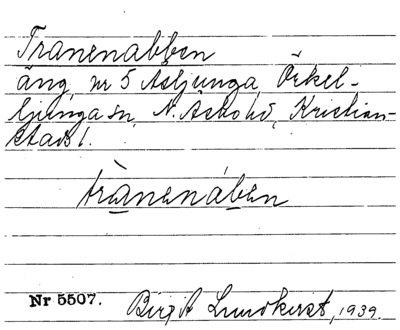 Tranenabben
äng, nr 5 Åsljunga, Örkel-
ljunga sn, N. Åsbo hd, Kristian-
stads l.
trànenáben
Nr 5507.
Birgit Lundkvist, 1939.